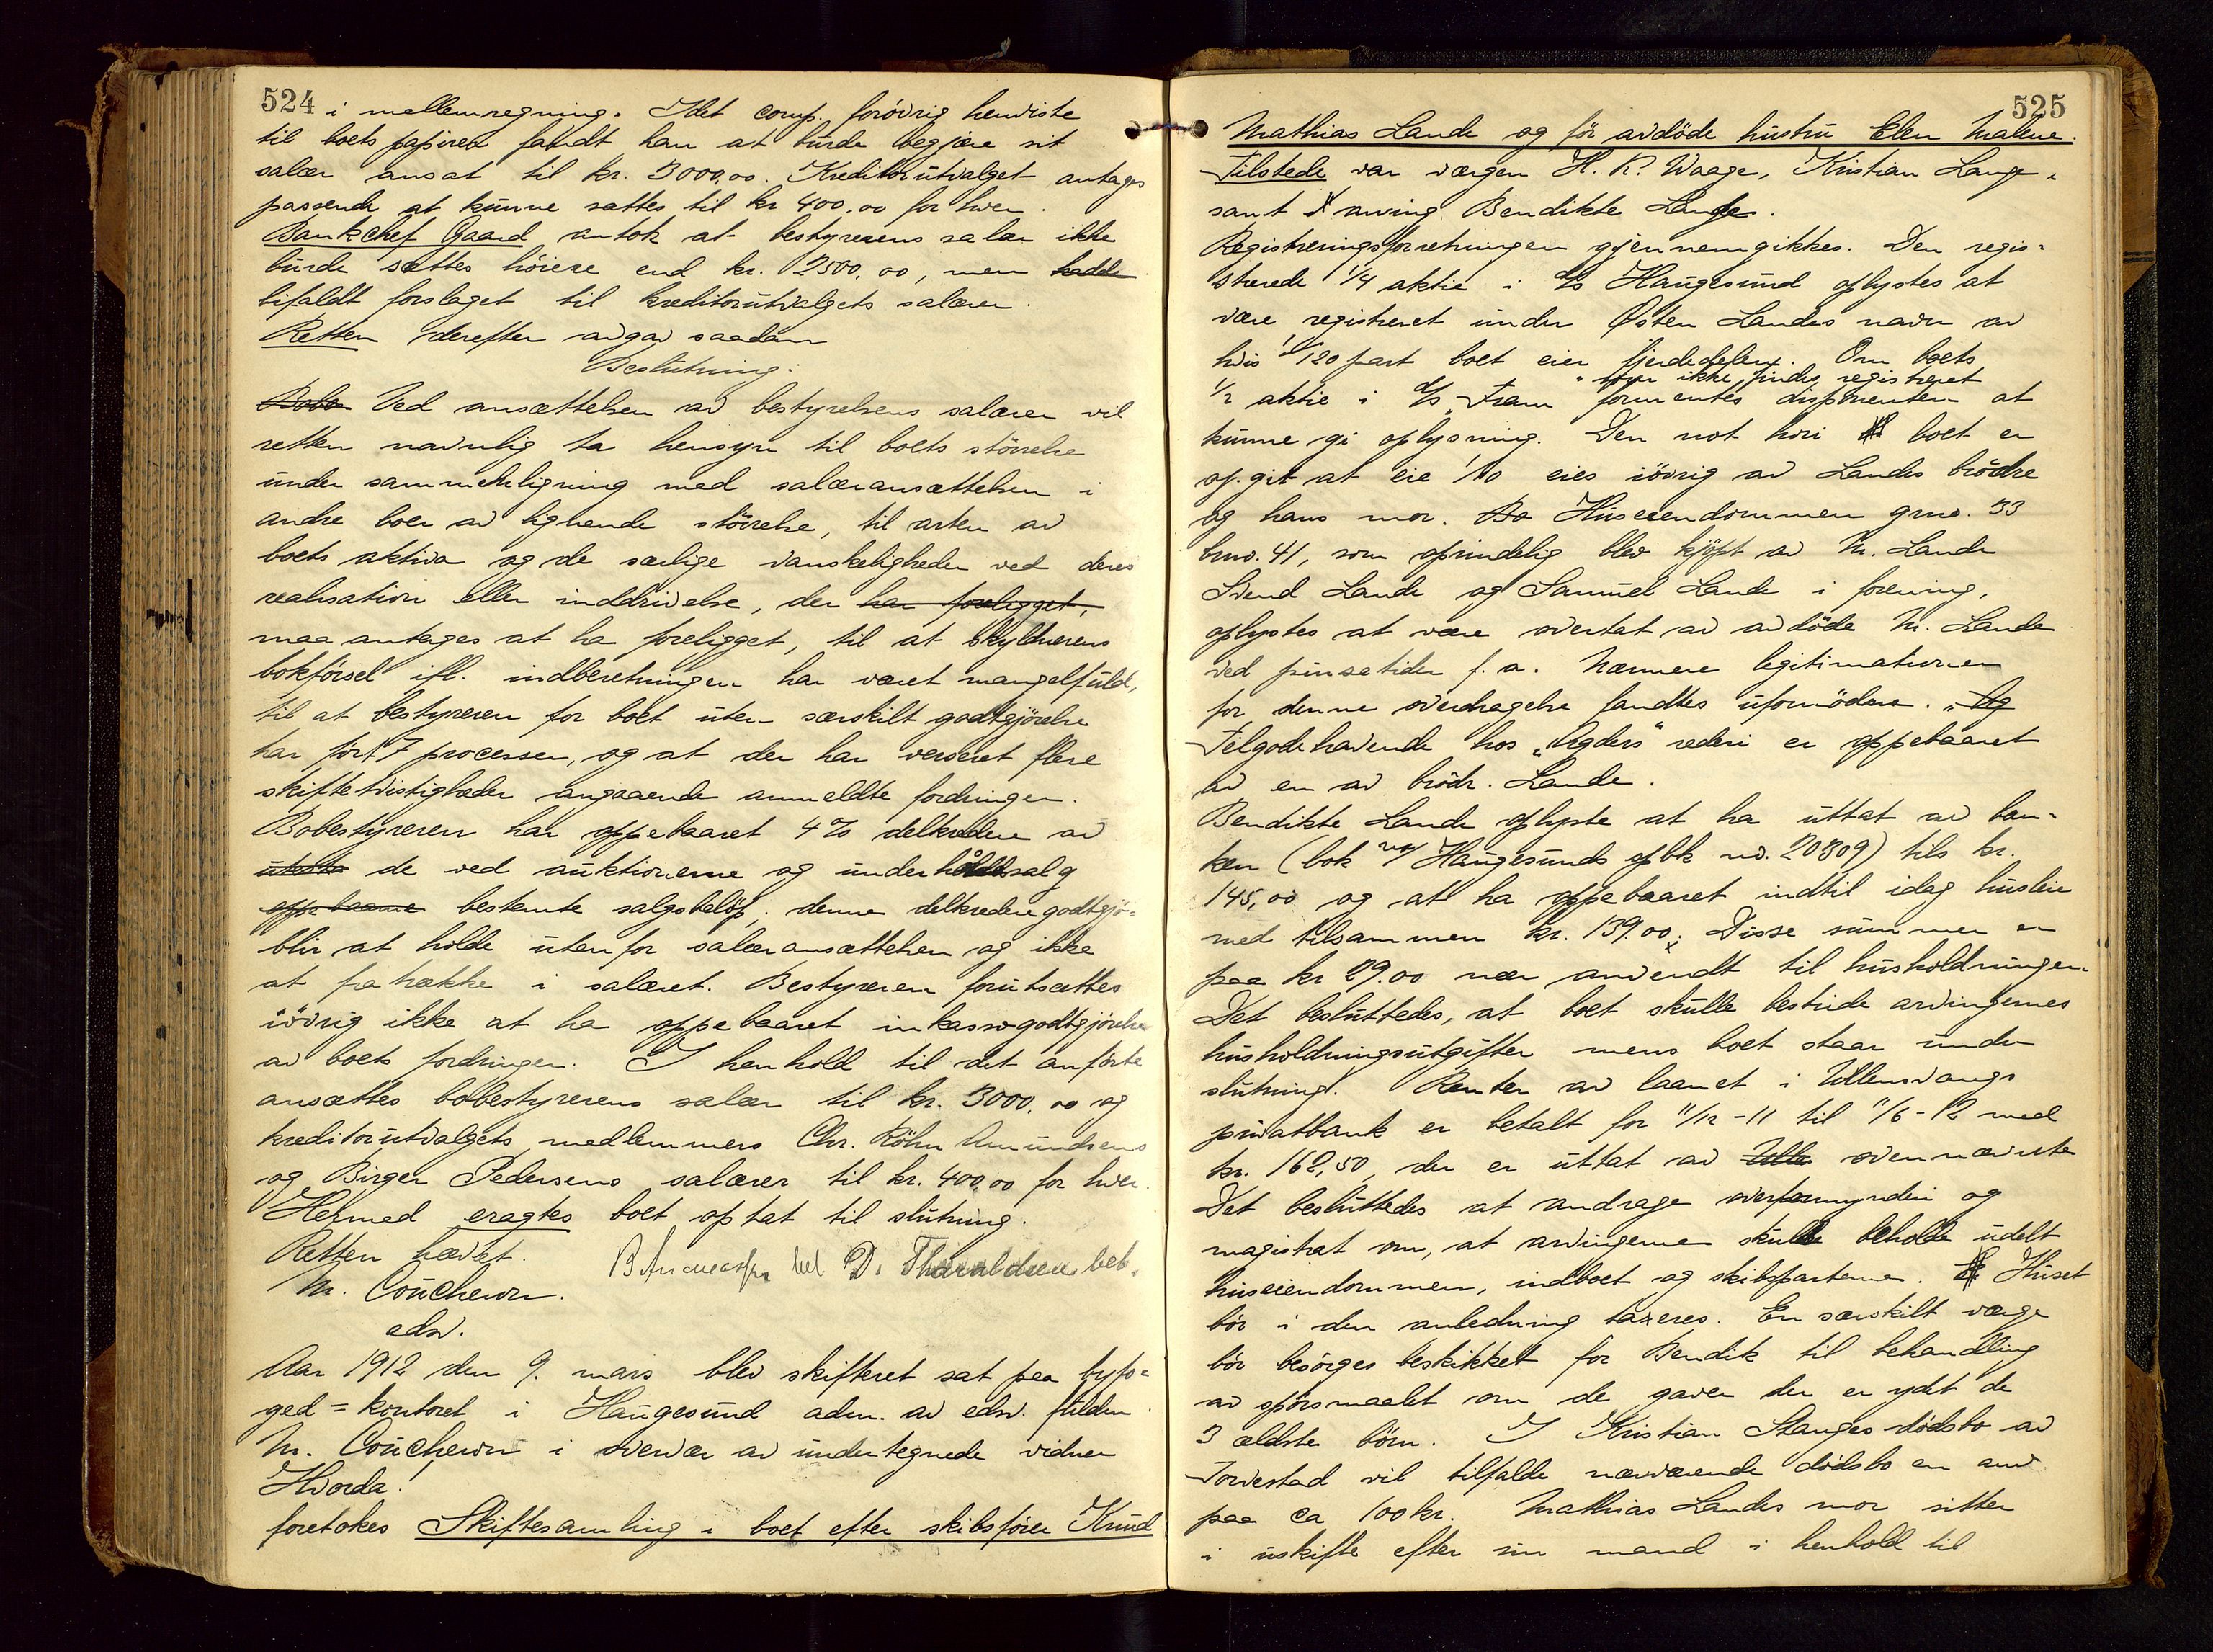 524
i mellemregning. Idet comp. forövrig henviste
til boets papirer fandt han at burde begjære sit
salær ansat til kr. 3000,00. Kreditorutvalget antages
passende at kunne sættes til kr 400,00 for hver.
Bankchef Gaard antok at bestyrerens salær ikke
burde sættes höiere end kr. 2500,00, men hadde
bifaldt forslaget til kreditorutvalgets salærer.
Retten derefter avgav saadan
Beslutning:
Bobe Ved ansættelsen av bestyrelsens salærer vil
retten navnlig ta hensyn til boets störrelse
under sammenligning med salæransættelsen i
andre boer av lignende störrelse, til arten av
boets aktiva og de særlige vanskeligheder ved deres
realisation eller inddrivelse, der har foreligget,
maa antages at ha foreligget, til at skyldnerens
bokførsel ifl. indberetningen har været mangelfuld,
til at bestyreren for boet uten særskilt godtgjörelse
har fört 7 processer, og at der har verseret flere
skiftetvistigheder angaaende anmeldte fordringer.
Bobestyreren har oppebaaret 4% delkredere av
de ved auktionerne og underhåndssalg
oppebaarne bestemte salgsbeløp; denne delkrederegodtgjö-
blir at holde utenfor salæransættelsen og ikke
at fratrække i salæret. Bestyreren forutsættes
iövrig ikke at ha oppebaaret inkassogodtgjörelse
av boets fordringer. I henhold til det anförte
ansættes bobestyrerens salær til kr. 3000,00 og
kreditorutvalgets medlemmers Chr. Röhn Amundsens
og Birger Pedersens salærer til kr. 400,00 for hver.
Hermed eragtes boet optat til slutning.
Retten hævet.
D. Tharaldsen bet.
M. Coucheron.
edsv.
Aar 1912 den 9. mars blev skifteret sat paa byfo-
ged=kontoret i Haugesund adm. av edsv. fuldm.
M. Coucheron i overvær av undertegnede vidner
Hvorda!
foretokes Skiftesamling i boet efter skibsfører Knud
525
Mathias Lande og för avdöde hustru Elen Malene.
Tilstede var værgen H. R. Waage, Kristian Lange,
samt arving Bendikte Lande.
Registreringsforretningen gjennemgikkes. Den regis-
strerede 1/4 aktie i D/s Haugesund oplystes at
være registreret under Østen Landes navn av
hvis 1/120 part boet eier fjerdedelen. Om boets
som ikke findes registreret
1/2 aktie i D/s "Fram" formentes disponenten at
kunne gi oplysning. Den not hvori boet er
opgit at eie 1/10 eies iövrig av Landes brödre
og hans mor. Bo Huseiendommen grno. 33
brno. 41, som oprindelig blev kjöpt av M. Lande
Svend Lande og Samuel Lande i forening,
oplystes at være overtat av avdöde M. Lande
ved pinsetider f. a. Nærmere legitimationer
for denne overdragelse fandtes ufornödne. "Ag
Tilgodehavende hos "Agders" rederi er oppebaaret
av en av brödr. Lande.
Bendikte Lande oplyste at ha uttat av ban-
ken (bok Haugesunds opbk no. 20309) tils kr.
145,00 og at ha oppebaaret indtil idag husleie
med tilsammen kr. 139.00. Disse summer er
paa kr 29.00 nær anvendt til husholdningen.
Det besluttedes, at boet skulle bestride arvingernes
husholdningsutgifter mens boet staar under
slutning. Renter av laanet i Ullensvangs
privatbank er betalt for 11/12-11 til 11/6-12 med
kr. 162,50, der er uttat av ovennævnte
Det besluttedes at andrage overformynderi og
magistrat om, at arvingerne skulle beholde udelt
huseiendommen, indboet og skibsparterne. Huset
bör i den anledning taxeres. En særskilt værge
bör besörges beskikket for Bendik til behandling
av spörsmaalet om de gaver der er ydet de
3 ældste börn. I Kristian Stanges dödsbo av
Torvestad vil tilfalde nærværende dödsbo en arv
paa ca 100 kr. Mathias Landes mor sitter
i uskifte efter sin mand i henhold til